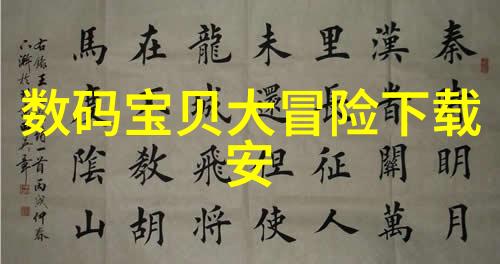 数码宝贝大冒险下载
安
秦明月
漢關萬
里長征人
未還但使
龍城飛將
在教胡
馬度陰山
右錄王首丙戌仲春